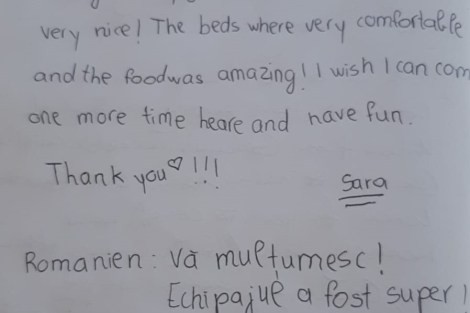 very nice! The beds where very comfortable
and the food was amazing! I wish I can com
one more time heare and have fun.
Thank you♡!!!
Sara
Romanien: Vă mulțumesc!
Echipajul a fost super!